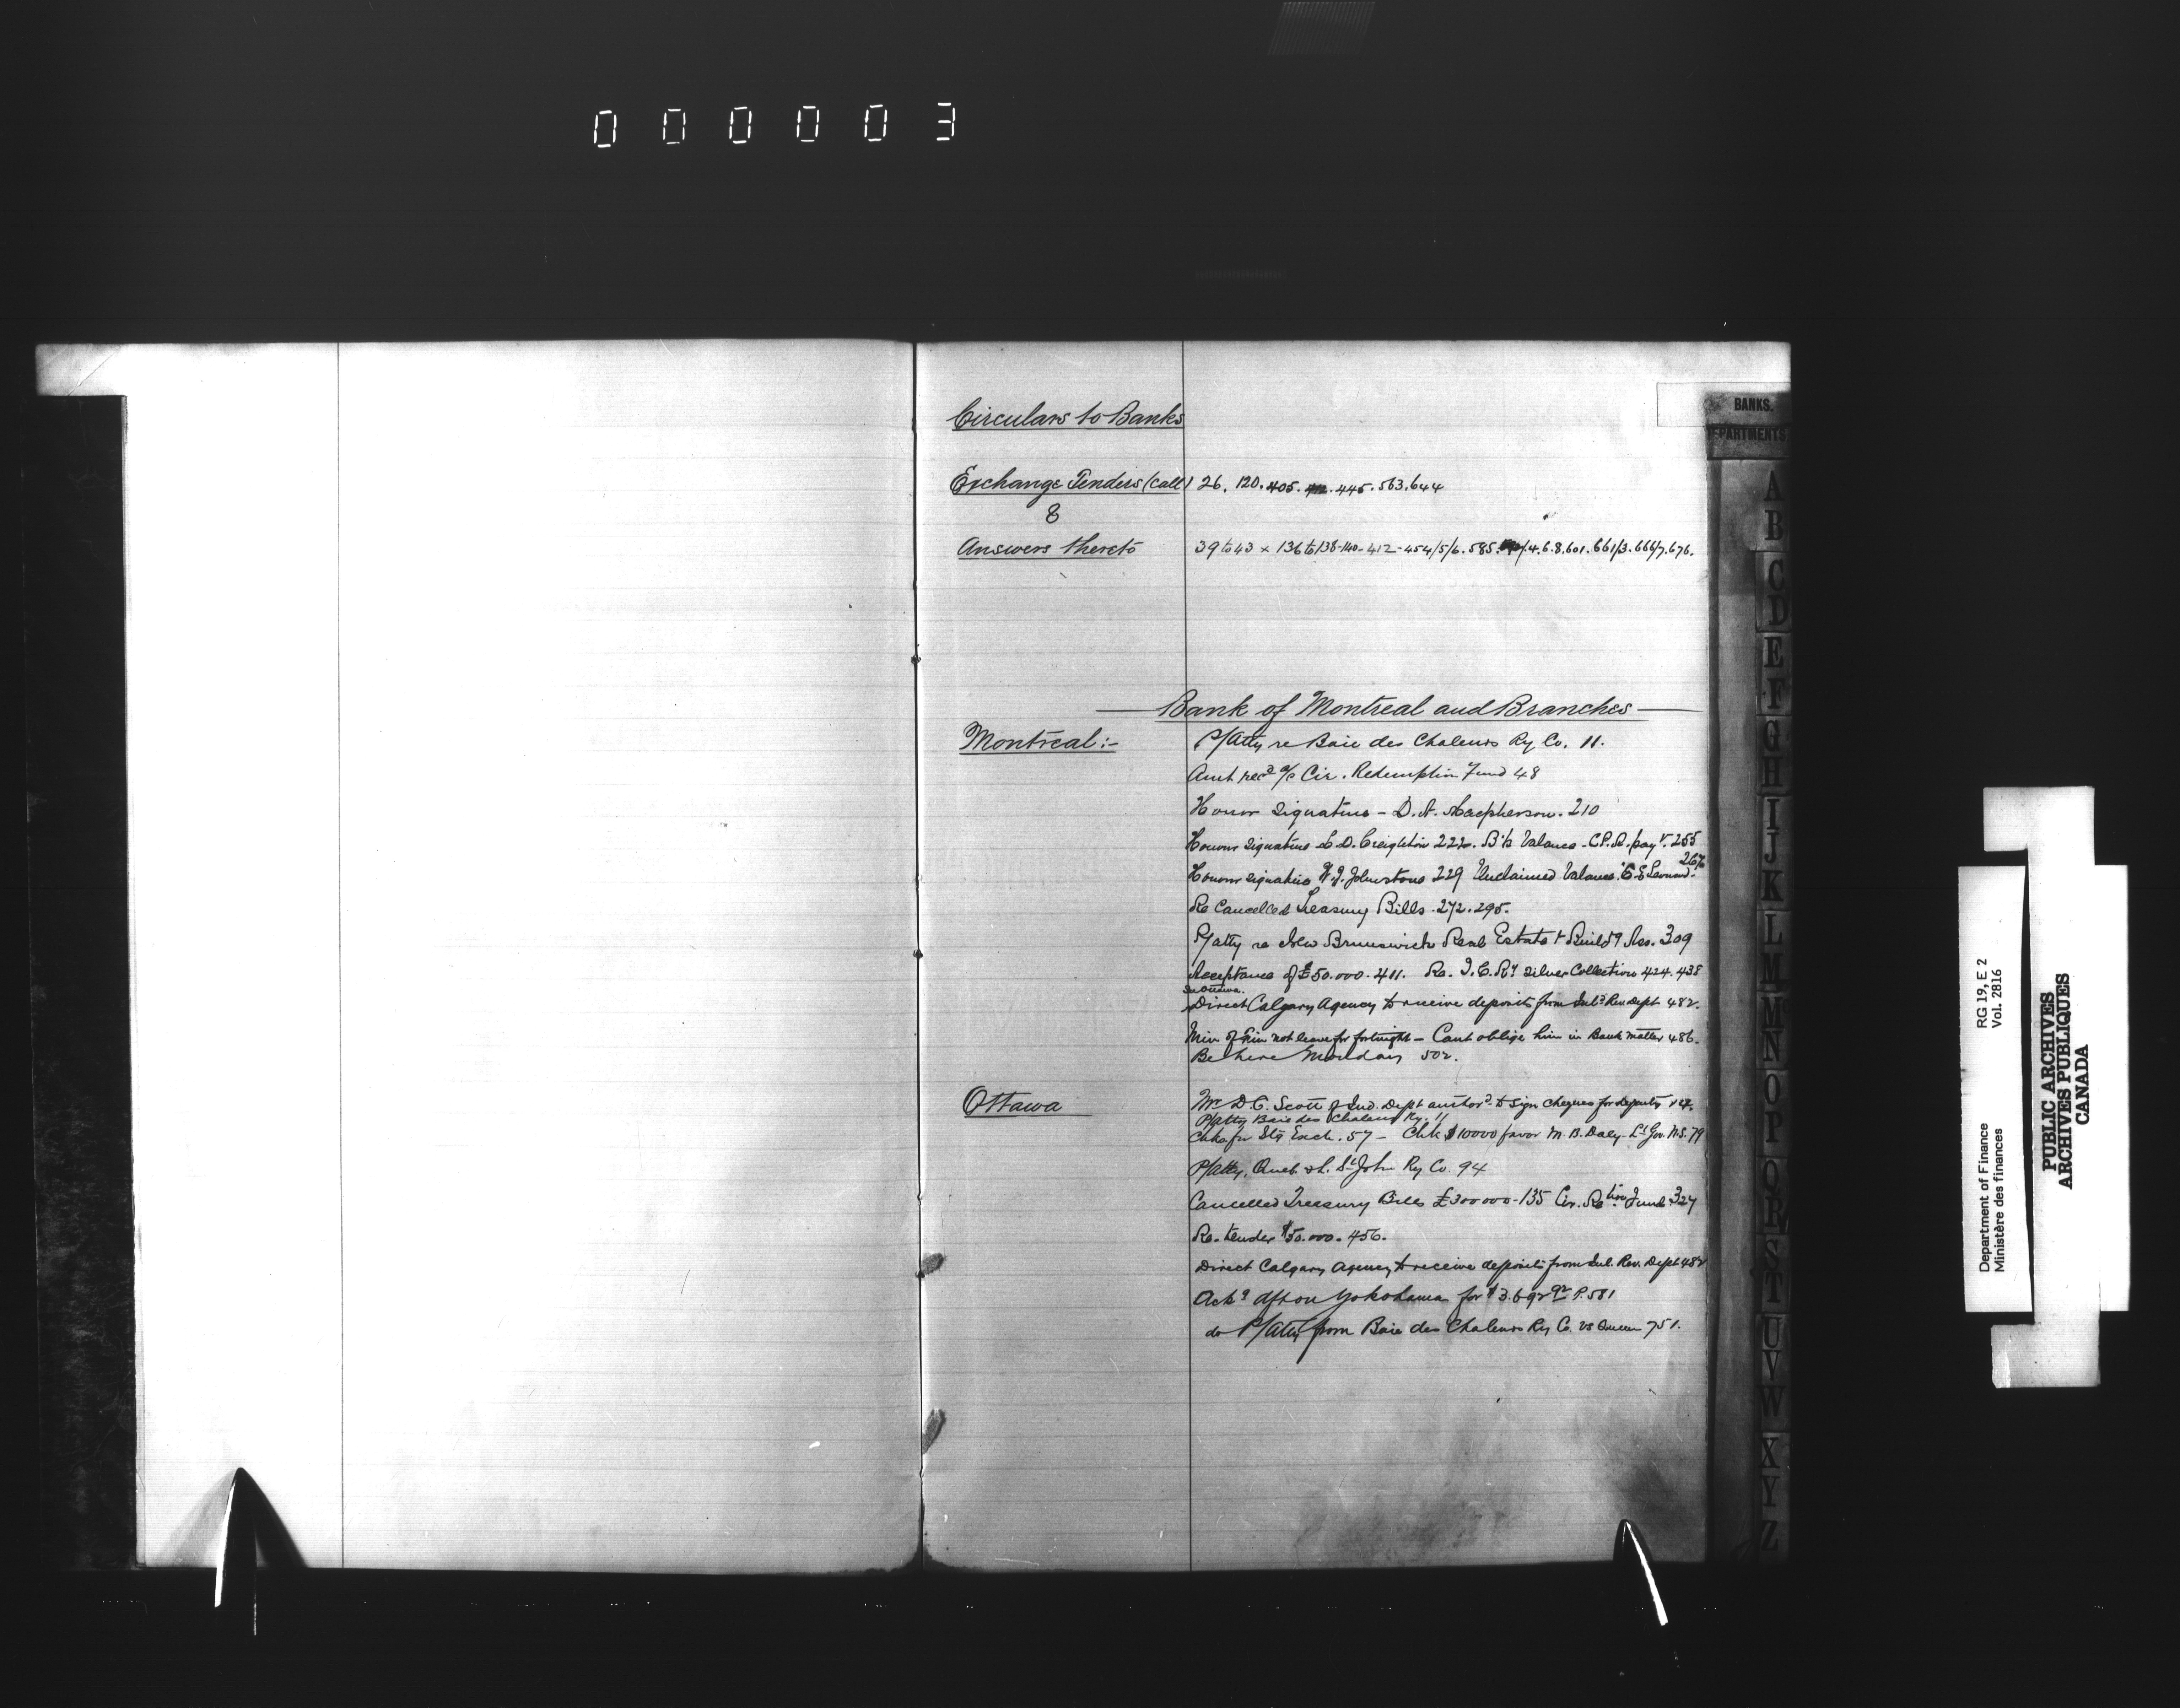 000003
Circulars to Banks
Exchange Tenders (call) 26. 120. 405. 445. 563. 644
&
Answers thereto 39 to 43 x 136 to 138-140-412-454/5/6. 585. /4.6.8.601. 661/3. 666/7. 676.
Bank of Montreal and Branches
Montreal:- P/Atty re Baie des Chaleurs Ry Co. 11.
Amt recd a/c Cir. Redemption Fund 48
Honor Signature - D. A. Macpherson. 210
Honour Signature D. Creighton 222. Balance - C.P.R. pay 255
Honour Signature W. J. Johnstone 229 Unclaimed Balance 267
Re Cancelled Treasury Bills. 272. 295.
P/atty re New Brunswick Real Estate & Build'g Ass. 309
Acceptance of £50.000. 411. Re. I. C. Ry Silver Collection 424. 438
See Ottawa.
Direct Calgary Agency to receive deposits from Inld Rev. Dept 482.
Min of Fin not leave for fortnight - Cant oblige him in Bank matter 486.
Be here Monday 502.
Ottawa Mr D. C. Scott of Ind. Dept authord to sign cheques for deputy
P/atty Baie des Chaleurs Ry. 11
Chks for Stg Exch. 57 - Chk $10000 favor M. B. Daly - Lt Gov. N.S. 79
P/atty. Queb. & L. St John Ry Co. 94
Cancelled Treasury Bills £300000 - 135 Cir. Retion Fund 327
Re. tender $50.000. 456.
Direct Calgary Agency to receive deposits from Inl. Rev. Dept 482
Ackg dft on Yokohama for $3.692 P. 581
do P/Atty from Baie des Chaleurs Ry Co. vs Queen 751.
BANKS.
DEPARTMENTS
A
B
C
D
E
F
G
H
I
J
K
L
M
M
N
O
P
Q
R
S
T
U
V
W
X
Y
Z
Department of Finance RG 19, E 2
Ministère des finances Vol. 2816
PUBLIC ARCHIVES
ARCHIVES PUBLIQUES
CANADA